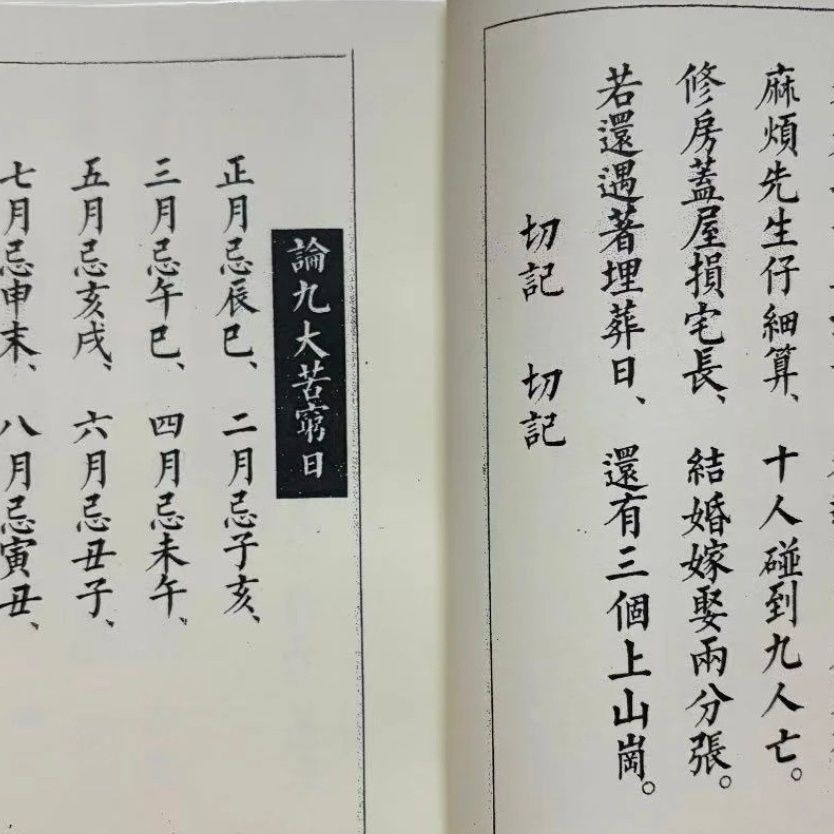 麻煩先生仔細算、十人碰到九人亡。
修房蓋屋損宅長、結婚嫁娶兩分張。
若還遇著埋葬日、還有三個上山崗。
切記 切記
論九大苦窮日
正月忌辰巳、二月忌子亥、
三月忌午巳、四月忌未午、
五月忌亥戌、六月忌丑子、
七月忌申末、八月忌寅丑、